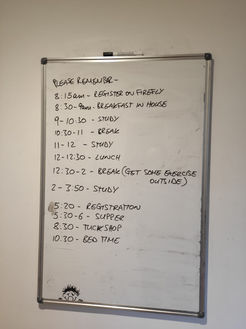 PLEASE REMEMBER-
8:15am - REGISTER ON FIREFLY
8:30-9am - BREAKFAST IN HOUSE
9-10:30 - STUDY
10:30-11 - BREAK
11-12 - STUDY
12-12:30 - LUNCH
12:30-2 - BREAK (GET SOME EXERCISE
OUTSIDE)
2-3:50 - STUDY
5:20 - REGISTRATION
5:30-6 - SUPPER
8:30 - TUCKSHOP
10:30 - BED TIME